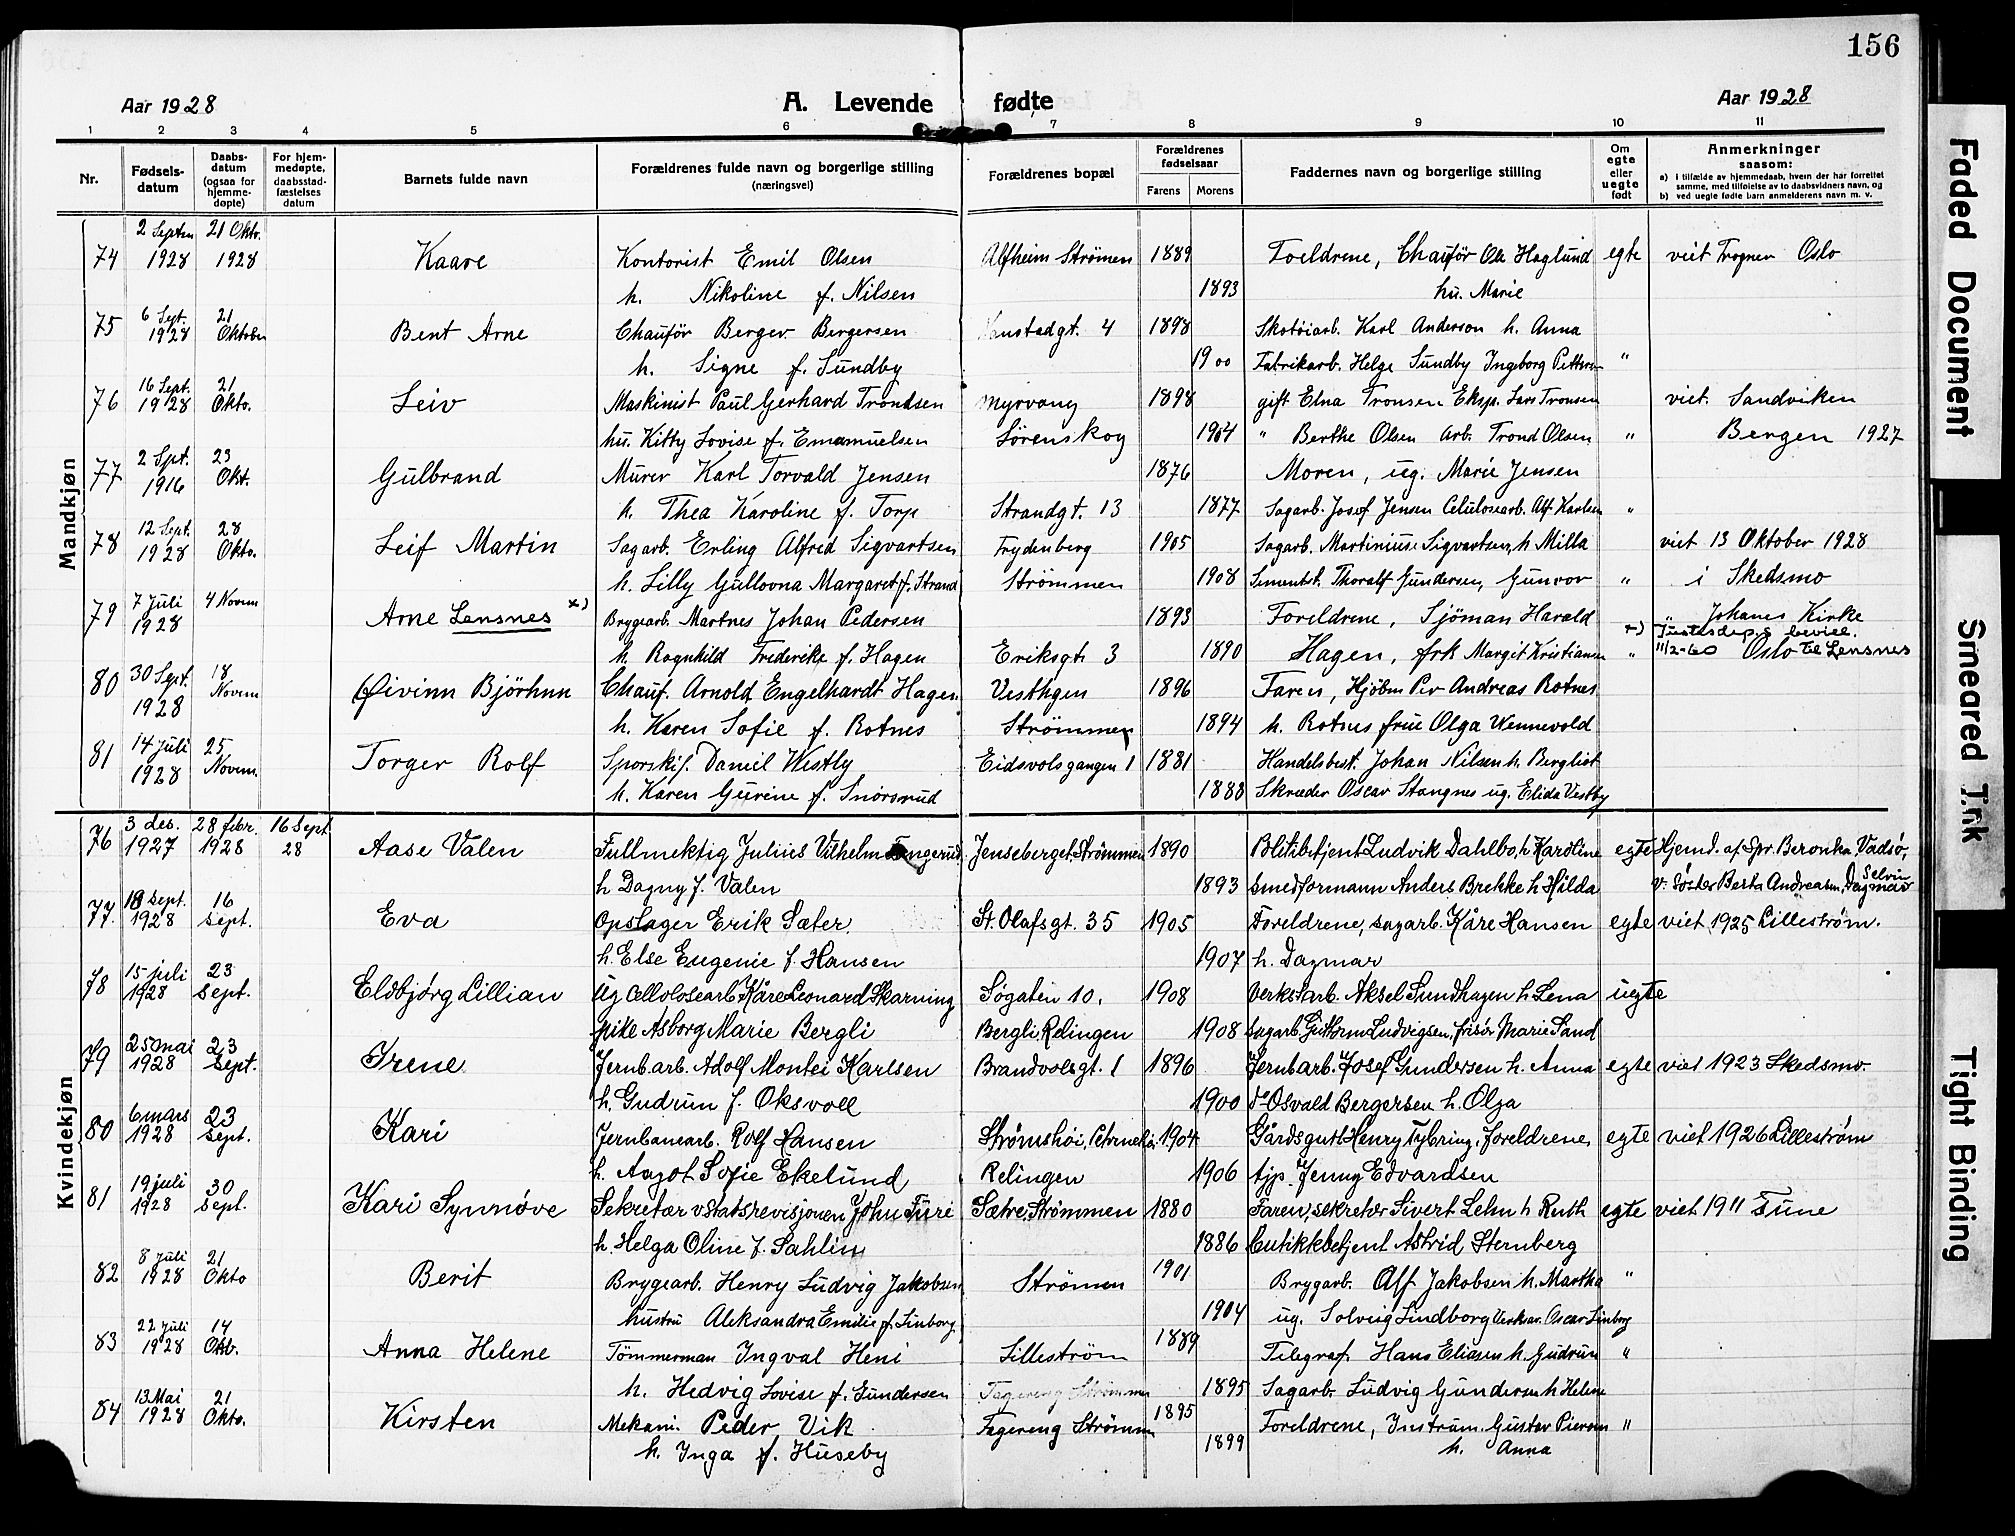 156
Aar 1928 A. Levende fødte Aar 1928
1 2 3 4 5 6 7 8 9 10 11
Nr. Fødsels-datum Daabs-datum (ogsaa for hjemme-døpte) For hjem-medøpte, daabsstad-fæstelses datum Barnets fulde navn Forældrenes fulde navn og borgerlige stilling (næringsvei) Forældrenes bopæl Forældrenes fødselsaar Farens Morens Faddernes navn og borgerlige stilling Om egte eller uegte født Anmerkninger saasom:
a) i tilfælde av hjemmedaab, hvem der har forrettet samme, med tilføielse av to daabsvidners navn, og
b) ved uegte fødte barn anmelderens navn m. v.
Mandkjøn
2 Septem 21 Okto.
74 1928 1928 Kaare Kontorist Emil Olsen Alfheim Strømen 1889 Foreldrene, Chauför Ole Haglund egte viet Trogner Oslo
h. Nikoline f. Nilsen 1893 hu. Marie
75 6 Sept. 1928 21 Oktober Bent Arne Chauför Berger Bergersen 4 1898 Skotöiarb. Karl Anderson h. Anna
h. Signe f. Sundby 1900 Fabrikarb. Helge Sundby Ingeborg Pettersen "
76 16 Sept. 1928 21 Okto. Leiv Maskinist Paul Gerhard Trondsen Myrvang 1898 gift Elna Tronsen Eksp. Lars Tronsen viet. Sandviken
hu. Kitty Lovise f. Emanuelsen Sørenskog 1904 " Berthe Olsen Arb. Trond Olsen " Bergen 1927
77 2 Spt. 1916 23 Okt. Gulbrand Murer Karl Torvald Jensen 1876 Moren, ug. Marie Jensen
h. Thea Karoline f. Torp Strandgt. 13 1877 Sagarb. Josef Jensen Celulosearb. Alf Karlsen "
78 12 Sept. 1928 28 Okto. Leif Martin Sagarb. Erling Alfred Sigvartsen Frydenberg 1905 Sagarb. Martiniuse Sigvartsen, h Milla viet 13 Oktober 1928
h. Lilly Gullovna Margaret f. Strand Strømmen 1908 Sementst. Thoralf Gundersen, Gunvor " i Skedsmo
79 7 Juli 1928 4 Novem Arne Lensnes x) Brygearb. Martnes Johan Pedersen 1893 Foreldrene, Sjöman Harald " Johanes Kirke
x) Justisdep.s bevill.
h. Ragnhild Frederike f. Hagen Eriksgt 3 1890 Hagen, frk Margit Kristiansen " 11/2-60 Oslo til Lensnes
80 30 Sept. 1928 18 Novem Øivinn Björhun Chauf. Arnold Engelhardt Hagen. Vesthgen 1896 Faren, Hjöbm Per Andreas Rotnes
h. Karen Sofie f. Rotnes Strömmen 1894 h. Rotnes frue Olga Wennevold
81 14 Juli 1928 25 Novem. Torger Rolf Sporskif. Daniel Westby Eidsvolsgangen 1 1881 Handelsbest. Johan Nilsen h. Bergliot
h. Karen Gurine f. Snorsrud 1888 Skræder Oscar Stangnes ug. Elida Vestby
Kvindekjøn
76 3 des. 1927 28 febr. 1928 16 Sept 28 Aase Valen Fullmektig Julius Vilhelm Tangerud Jenseberget Strømmen 1890 Politibetjent Ludvik Dahlbo, h Karoline egte Hjemd. af Spr. Beronka, Vadsø,
h Dagny f. Valen 1893 Smedformann Anders Brekke h Hilda v. Søster Berta Andreassen, Dagmar Selvin
77. 18 sept. 1928 16 sept. Eva Opslager Erik Sæter. St. Olafsgt. 35 1905 Foreldrene, sagarb. Kåre Hansen egte viet 1925 Lillestrøm.
h. Else Eugenie f. Hansen 1907 h. Dagmar
78 15 juli 1928 23 sept. Eldbjørg Lillian Ug Cellolosearb Kåre Leonard Skarning Søgaten 10. 1908 Verkstarb. Aksel Sundhagen h Lena uegte
pike Asborg Marie Bergli Bergli, Relingen 1908 Sagarb. Guthorm Ludvigsen, frisør Marie Sand
79 25 mai 1928 23 sept. Irene Jernb.arb. Adolf Montei Karlsen Brandvolsgt. 1 1896 Jernb.arb. Josef Gundersen h. Anna egte viet 1923 Skedsmo.
h. Gudrun f. Oksvoll 1900 do Osvald Bergersen h. Olga
80 6 mars 1928 23 sept. Kari Jernbanearb. Rolf Hansen Strømshøi, 1904 Gårdsgutt Henry Tybring, foreldrene, egte viet 1926 Lillestrøm
h. Aagot Sofie Ekelund Relingen 1906 tjp. Jenny Edvardsen
81 19 juli 1928 30 sept. Kari Synnøve Sekretær v Statsrevisjonen John Furi Sætre, Strømmen 1880 Faren, sekretær Sivert Lehn h Ruth egte viet 1911 Tune
h. Helga Oline f. Sahlin 1886 Butikkbetjent Astrid Sternberg
82 8 Juli 1928 21 Okto Berit Brygearb. Henry Ludvig Jakobsen Strömen 1901 Brygarb. Alf Jakobsen h. Martha "
hustru Aleksandra Emilie f. Linborg 1904 ug. Solveig Lindborg Verksar. Oscar Linborg
83 22 Juli 1928 14 Okb. Anna Helene Tömmerman Ingval Heni Lilleström 1889 Telegraf. Hans Eliasen h. Gudrun "
h. Hedvig Lovise f. Gundersen Fagereng Strömmen 1895 Sagarb. Ludvig Gundersen h Helene
84 13 Mai 1928 21 Okto. Kirsten Mekani. Peder Vik Fagereng Strömmen 1895 Foreldrene, Instrum. Gustav Piersen "
h. Inga f. Huseby 1899 h. Anna
Faded Document
Smeared Ink
Tight Binding